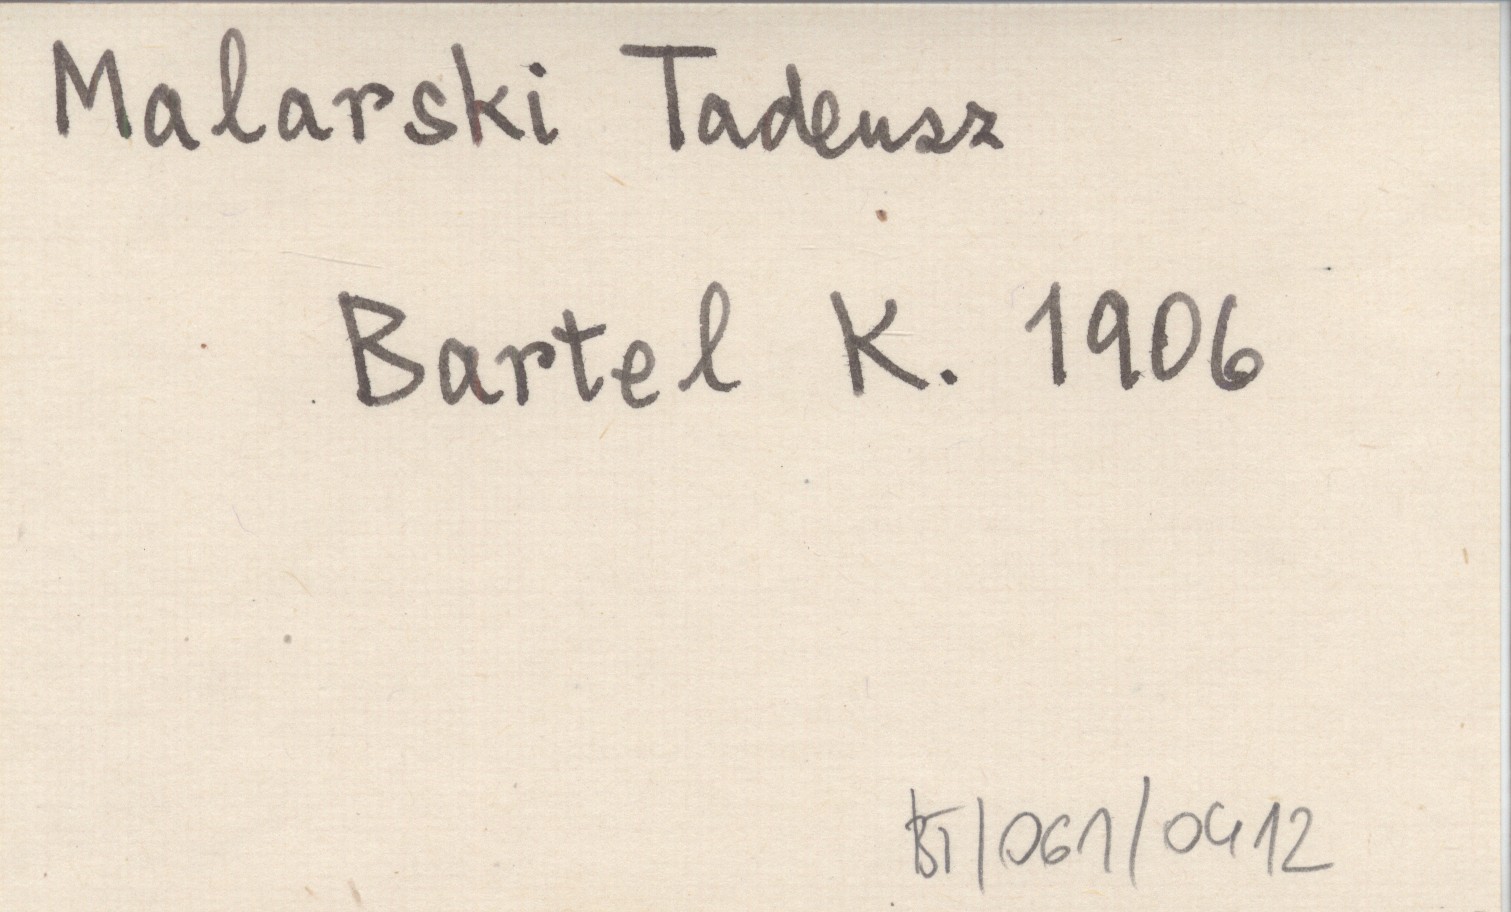 Malarski Tadeusz
Bartel K. 1906
BT/061/0412